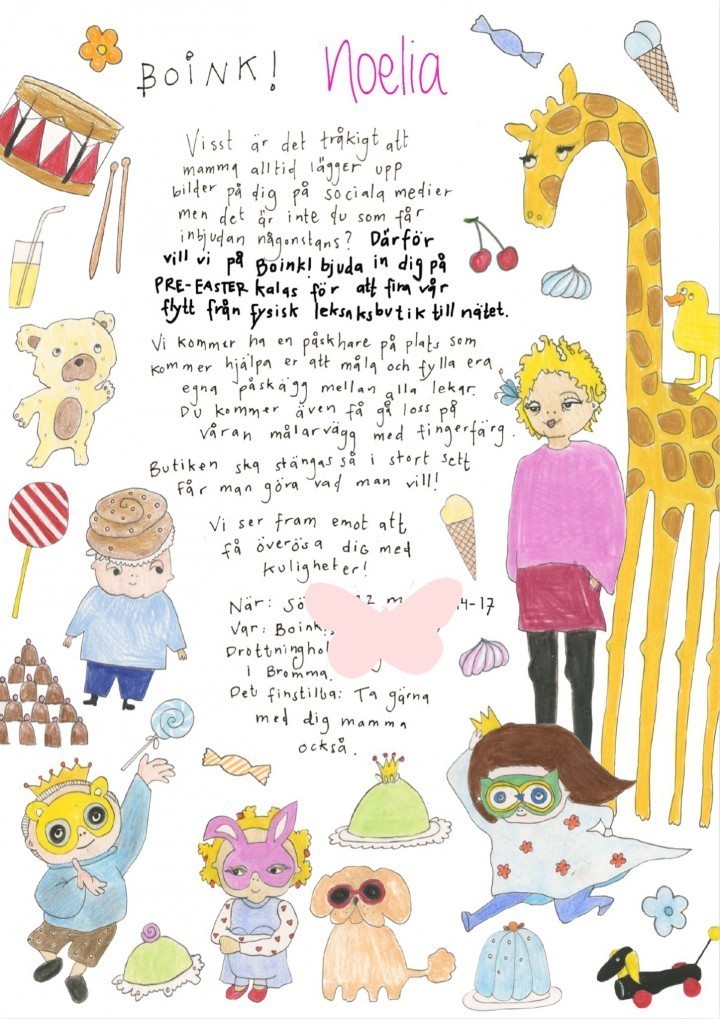 BOINK! Noelia
Visst är det tråkigt att
mamma alltid lägger upp
bilder på dig på sociala medier
men det är inte du som får
inbjudan någonstans? Därför
vill vi på Boink! bjuda in dig på
PRE-EASTER kalas för att fira vår
flytt från fysisk leksaksbutik till nätet.
Vi kommer ha en påskhare på plats som
kommer hjälpa er att måla och fylla era
egna påskägg mellan alla lekar.
Du kommer även få gå loss på
våran målarvägg med fingerfärg.
Butiken ska stängas så i stort sett
får man göra vad man vill!
Vi ser fram emot att
få överösa dig med
kuligheter!
När: 14-17
Var: Boink!
I Bromma.
Det finstilta: Ta gärna
med dig mamma
också.